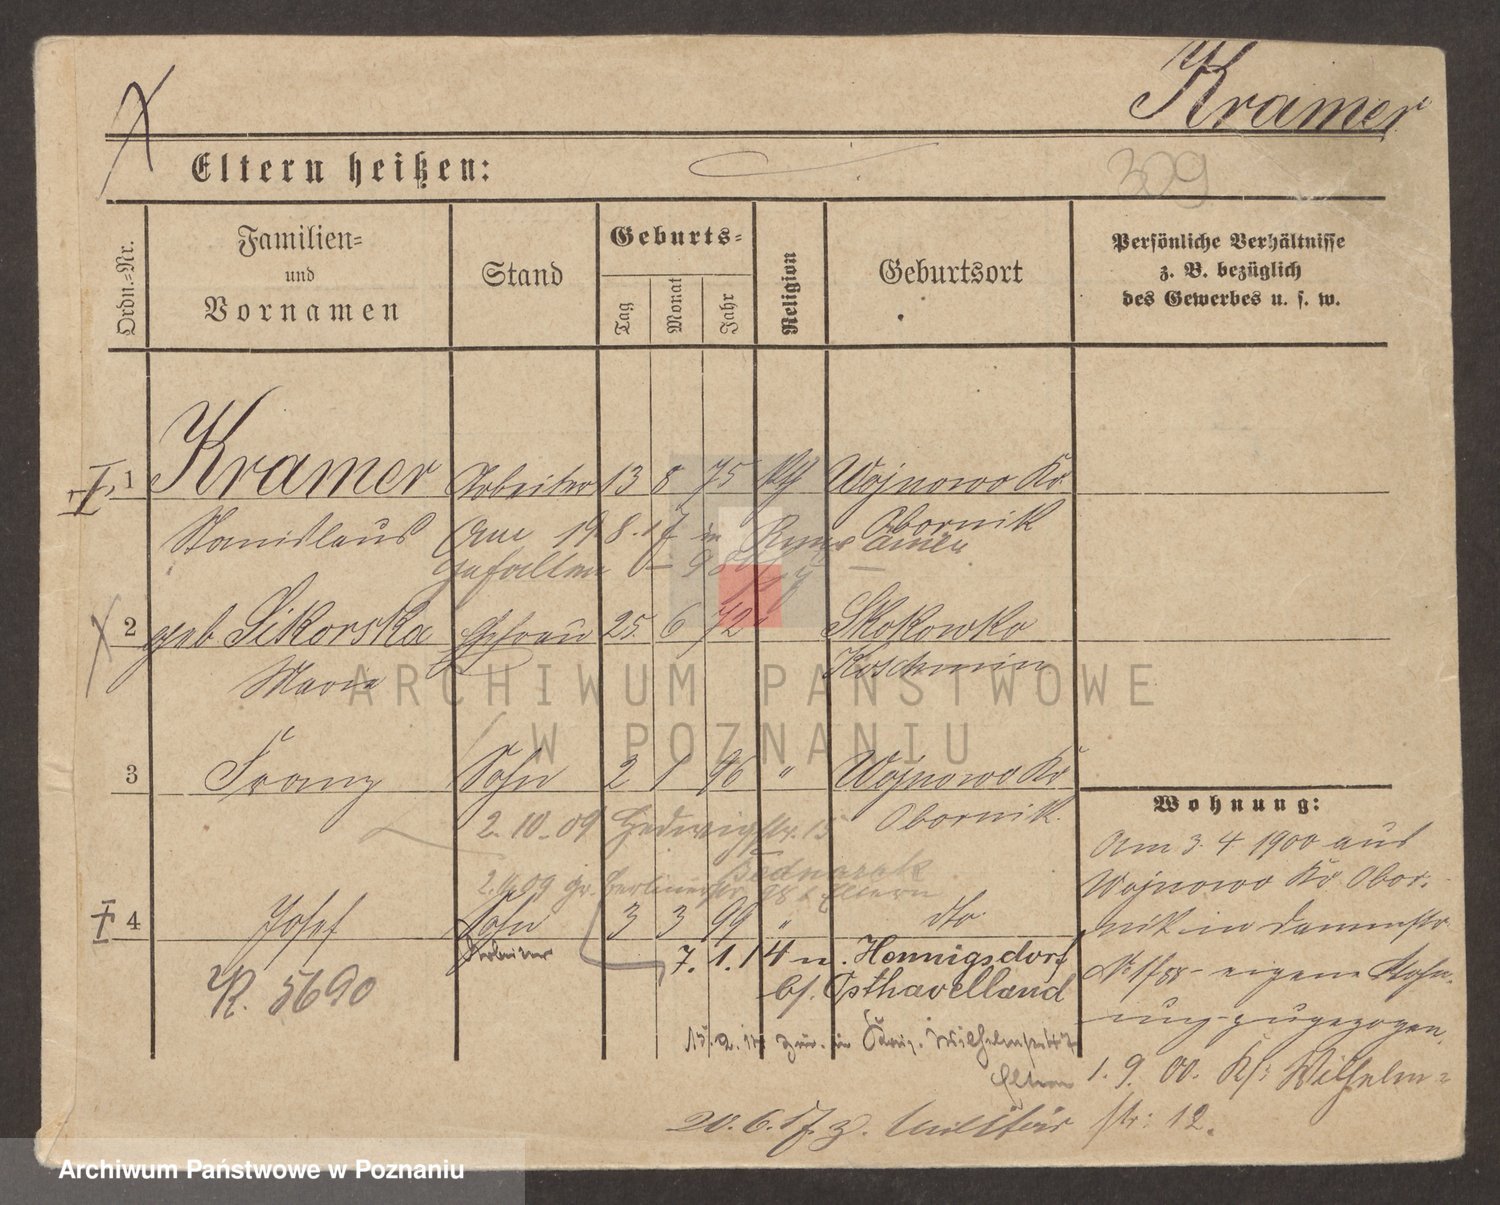 Kramer
Eltern heißen:
309
Ordn.=Nr.
Familien=
und
Vornamen
Stand
Geburts=
Tag
Monat
Jahr
Religion
Geburtsort
Persönliche Verhältnisse
z. B. bezüglich
des Gewerbes u. s. w.
1 Kramer Arbeiter 13 8 75 Wojnowo Kr.
Stanislaus Obornik
Am 19.8.17 in
gefallen
2 geb Sikorska Ehefrau 25. 6 72 Skokowko
Maria Koschmin
3 Franz Sohn 2 1 96 " Wojnowo Kr
Obornik.
2.10.09 Hedwigstr. 15
Bednarek
09 gr. Berlinerstr. 98 Eltern
4 Josef Sohn 3 3 99 " dto
Arbeiter 7. 1. 14 n. Hennigsdorf
R. 5690 Osthavelland
zur. in Wilhelmstr
Eltern
20.6.17 z. Militär
Wohnung:
Am 3. 4 1900 aus
Wojnowo Kr Obor-
nik in Dammstr.
eigene Wohn-
ung zugezogen.
1. 9. 00. Wilhelm=
str: 12.
ARCHIWUM PAŃSTWOWE
W POZNANIU
Archiwum Państwowe w Poznaniu